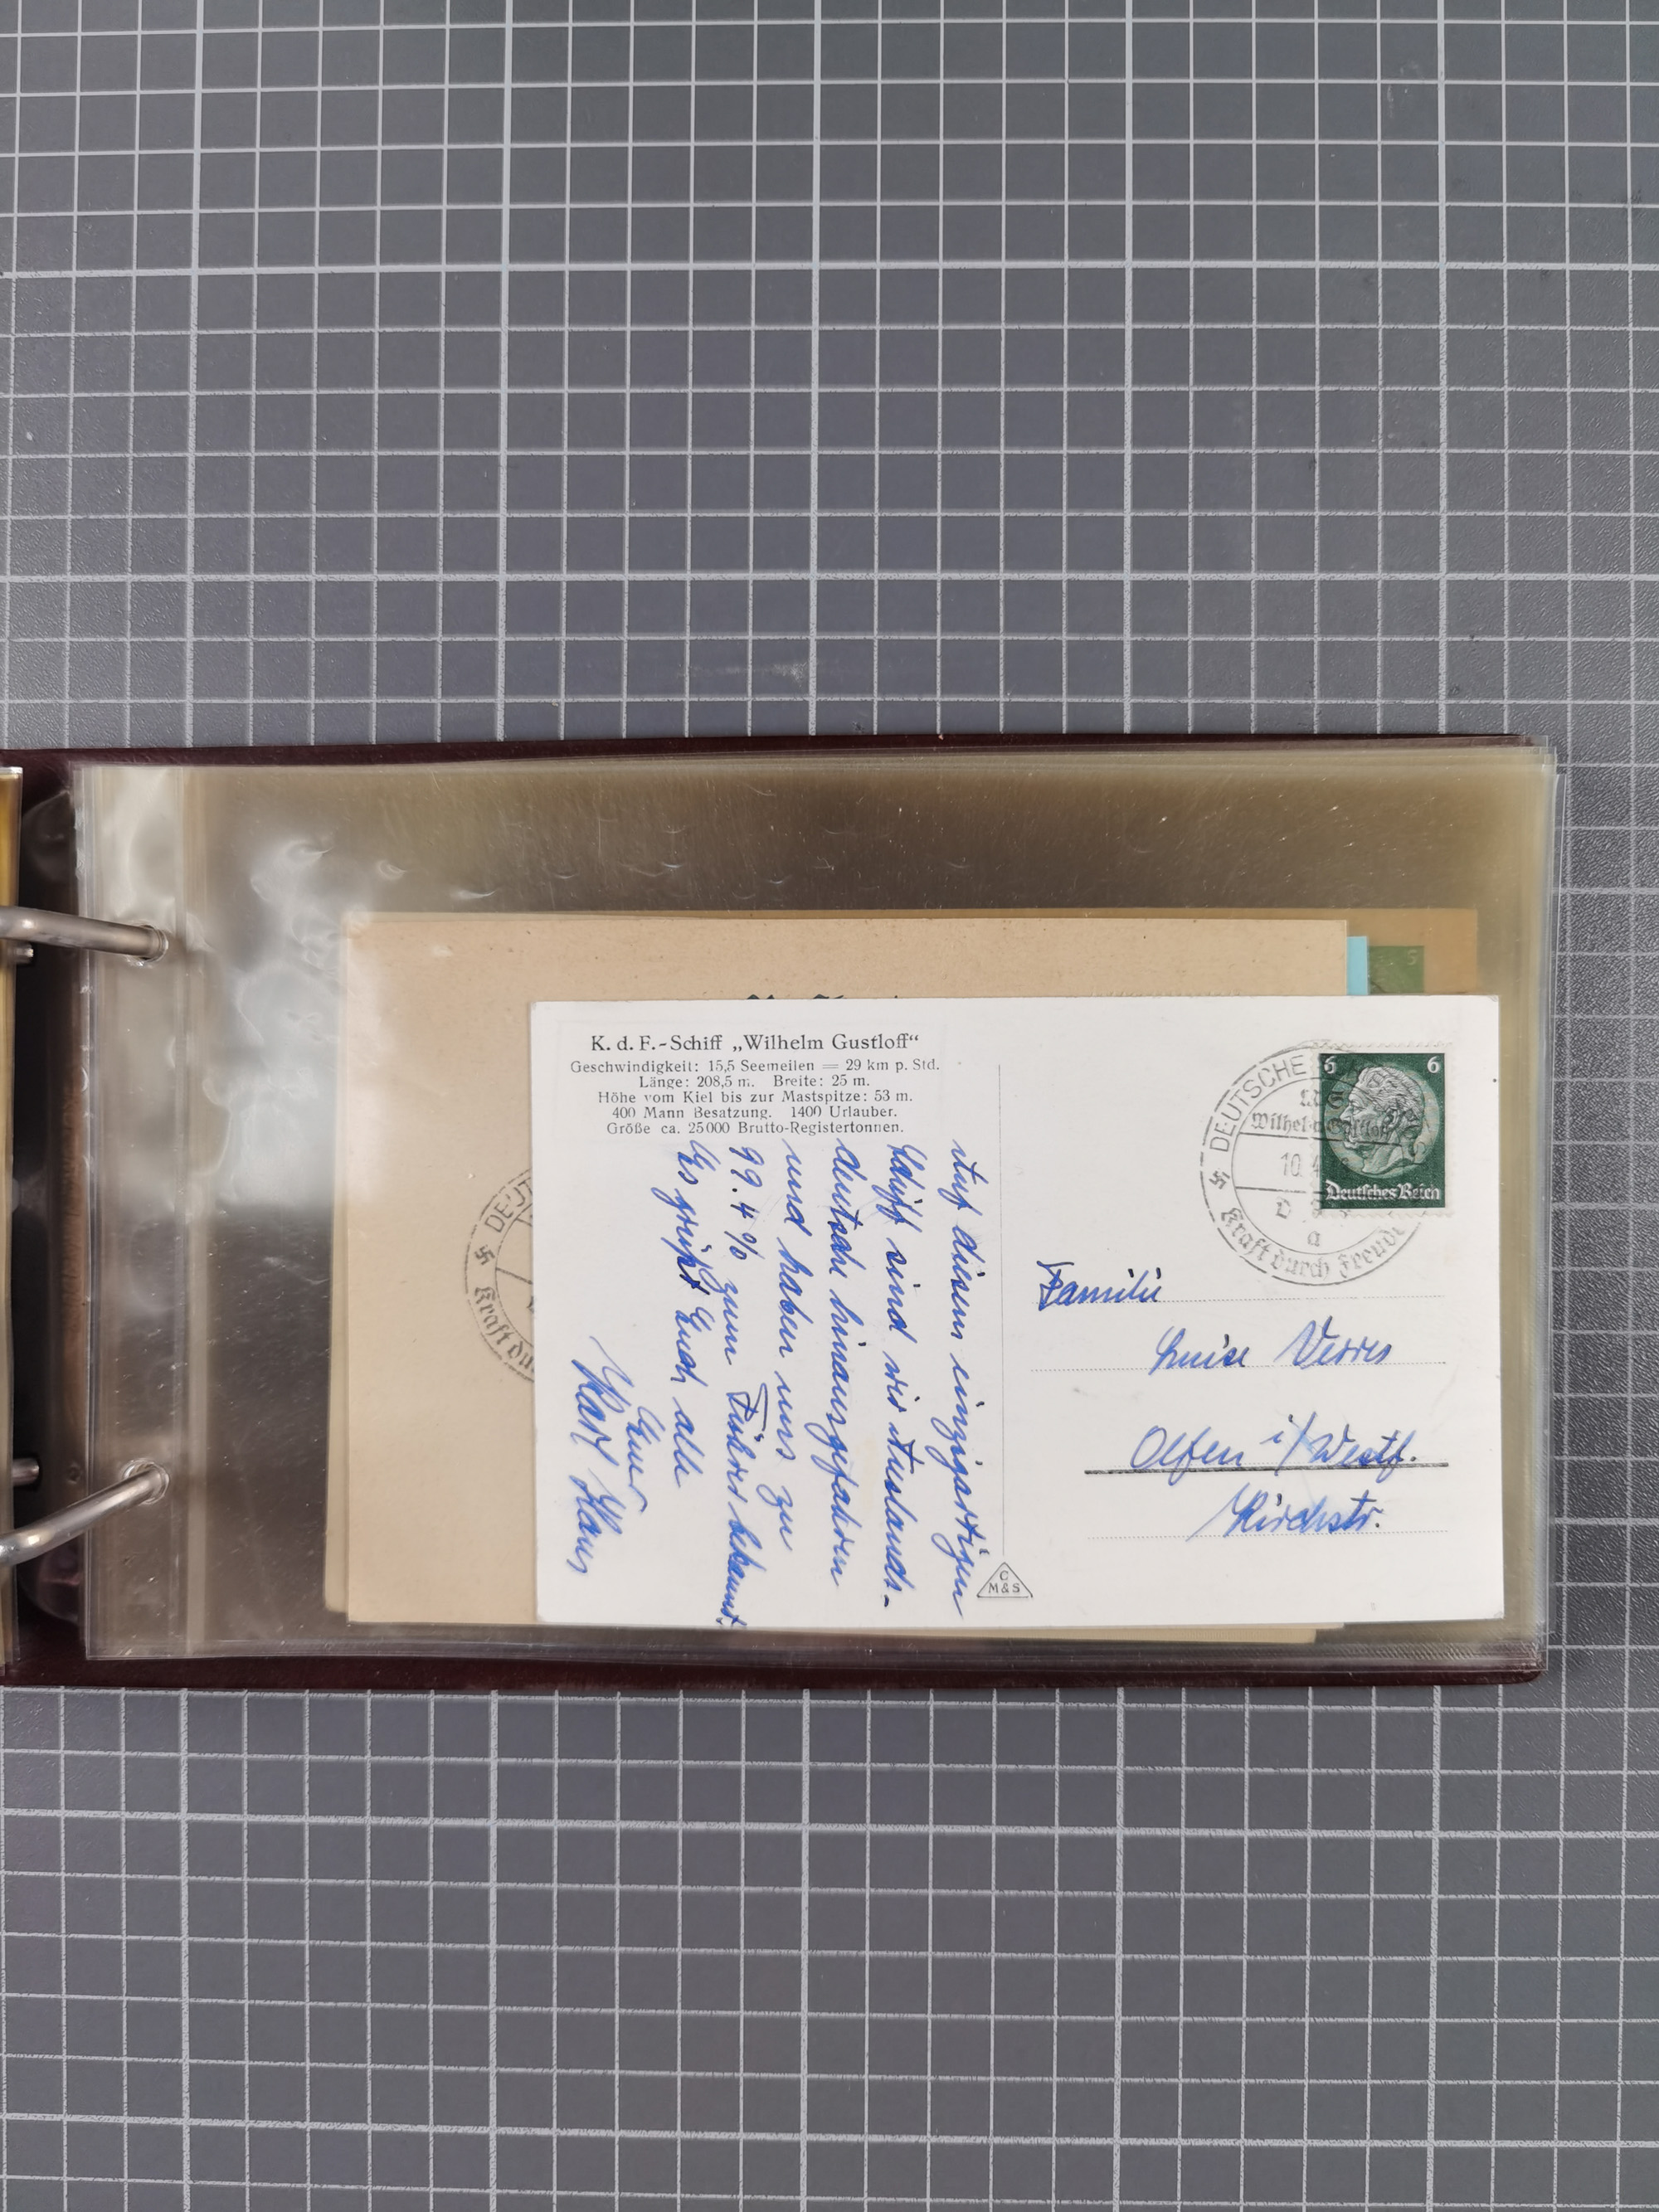 K. d. F.-Schiff „Wilhelm Gustloff“
Geschwindigkeit: 15,5 Seemeilen = 29 km p. Std.
Länge: 208,5 m. Breite: 25 m.
Höhe vom Kiel bis zur Mastspitze: 53 m.
400 Mann Besatzung. 1400 Urlauber.
Größe ca. 25000 Brutto-Registertonnen.
Auf diesem einzigartigen
Schiff sind wir Auslands-
deutsche hinausgefahren
und haben uns zu
99.4% zum Führer bekannt.
Es grüßt Euch alle
Euer
Karl Hans
C
M&S
6 6
Deutsches Reich
DEUTSCHE
Wilhelm Gustloff
10.4
a
Kraft durch Freude
Familie
Luise Verres
Olfen i/Westf.
Kirchstr.
DEUT
Kraft du
5